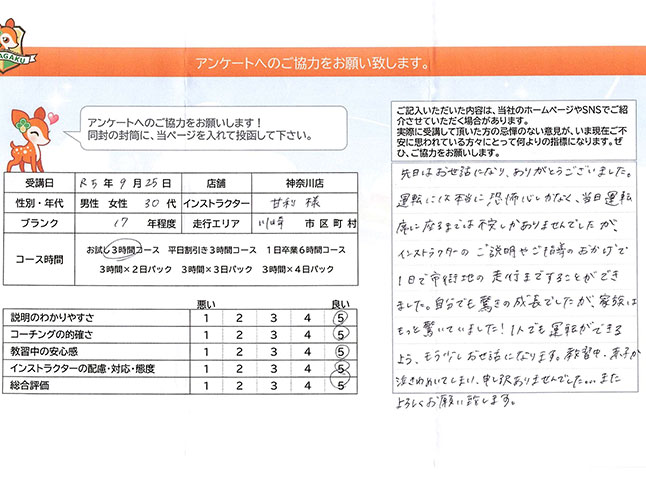 AGAKU
アンケートへのご協力をお願い致します。
アンケートへのご協力をお願いします！
同封の封筒に、当ページを入れて投函して下さい。
受講日 R5年9月25日 店舗 神奈川店
性別・年代 男性 女性 30代 インストラクター 甘利 様
ブランク 17 年程度 走行エリア 川崎 市区町村
コース時間 お試し3時間コース 平日割引き3時間コース 1日卒業6時間コース
3時間×2日パック 3時間×3日パック 3時間×4日パック
悪い 良い
説明のわかりやすさ 1 2 3 4 5
コーチングの的確さ 1 2 3 4 5
教習中の安心感 1 2 3 4 5
インストラクターの配慮・対応・態度 1 2 3 4 5
総合評価 1 2 3 4 5
ご記入いただいた内容は、当社のホームページやSNSでご紹
介させていただく場合があります。
実際に受講して頂いた方の忌憚のない意見が、いま現在ご不
安に思われている方々にとって何よりの指標になります。ぜ
ひ、ご協力をお願いします。
先日はお世話になり、ありがとうございました。
運転には本当に恐怖心しかなく、当日運転
席に座るまでは不安しかありませんでしたが、
インストラクターのご説明やご指導のおかげで
1日で市街地の走行まですることができ
ました。自分でも驚きの成長でしたが、家族は
もっと驚いていました！1人でも運転ができる
よう、もう少しお世話になります。教習中、息子が
泣きわめいてしまい、申し訳ありませんでした…また
よろしくお願い致します。